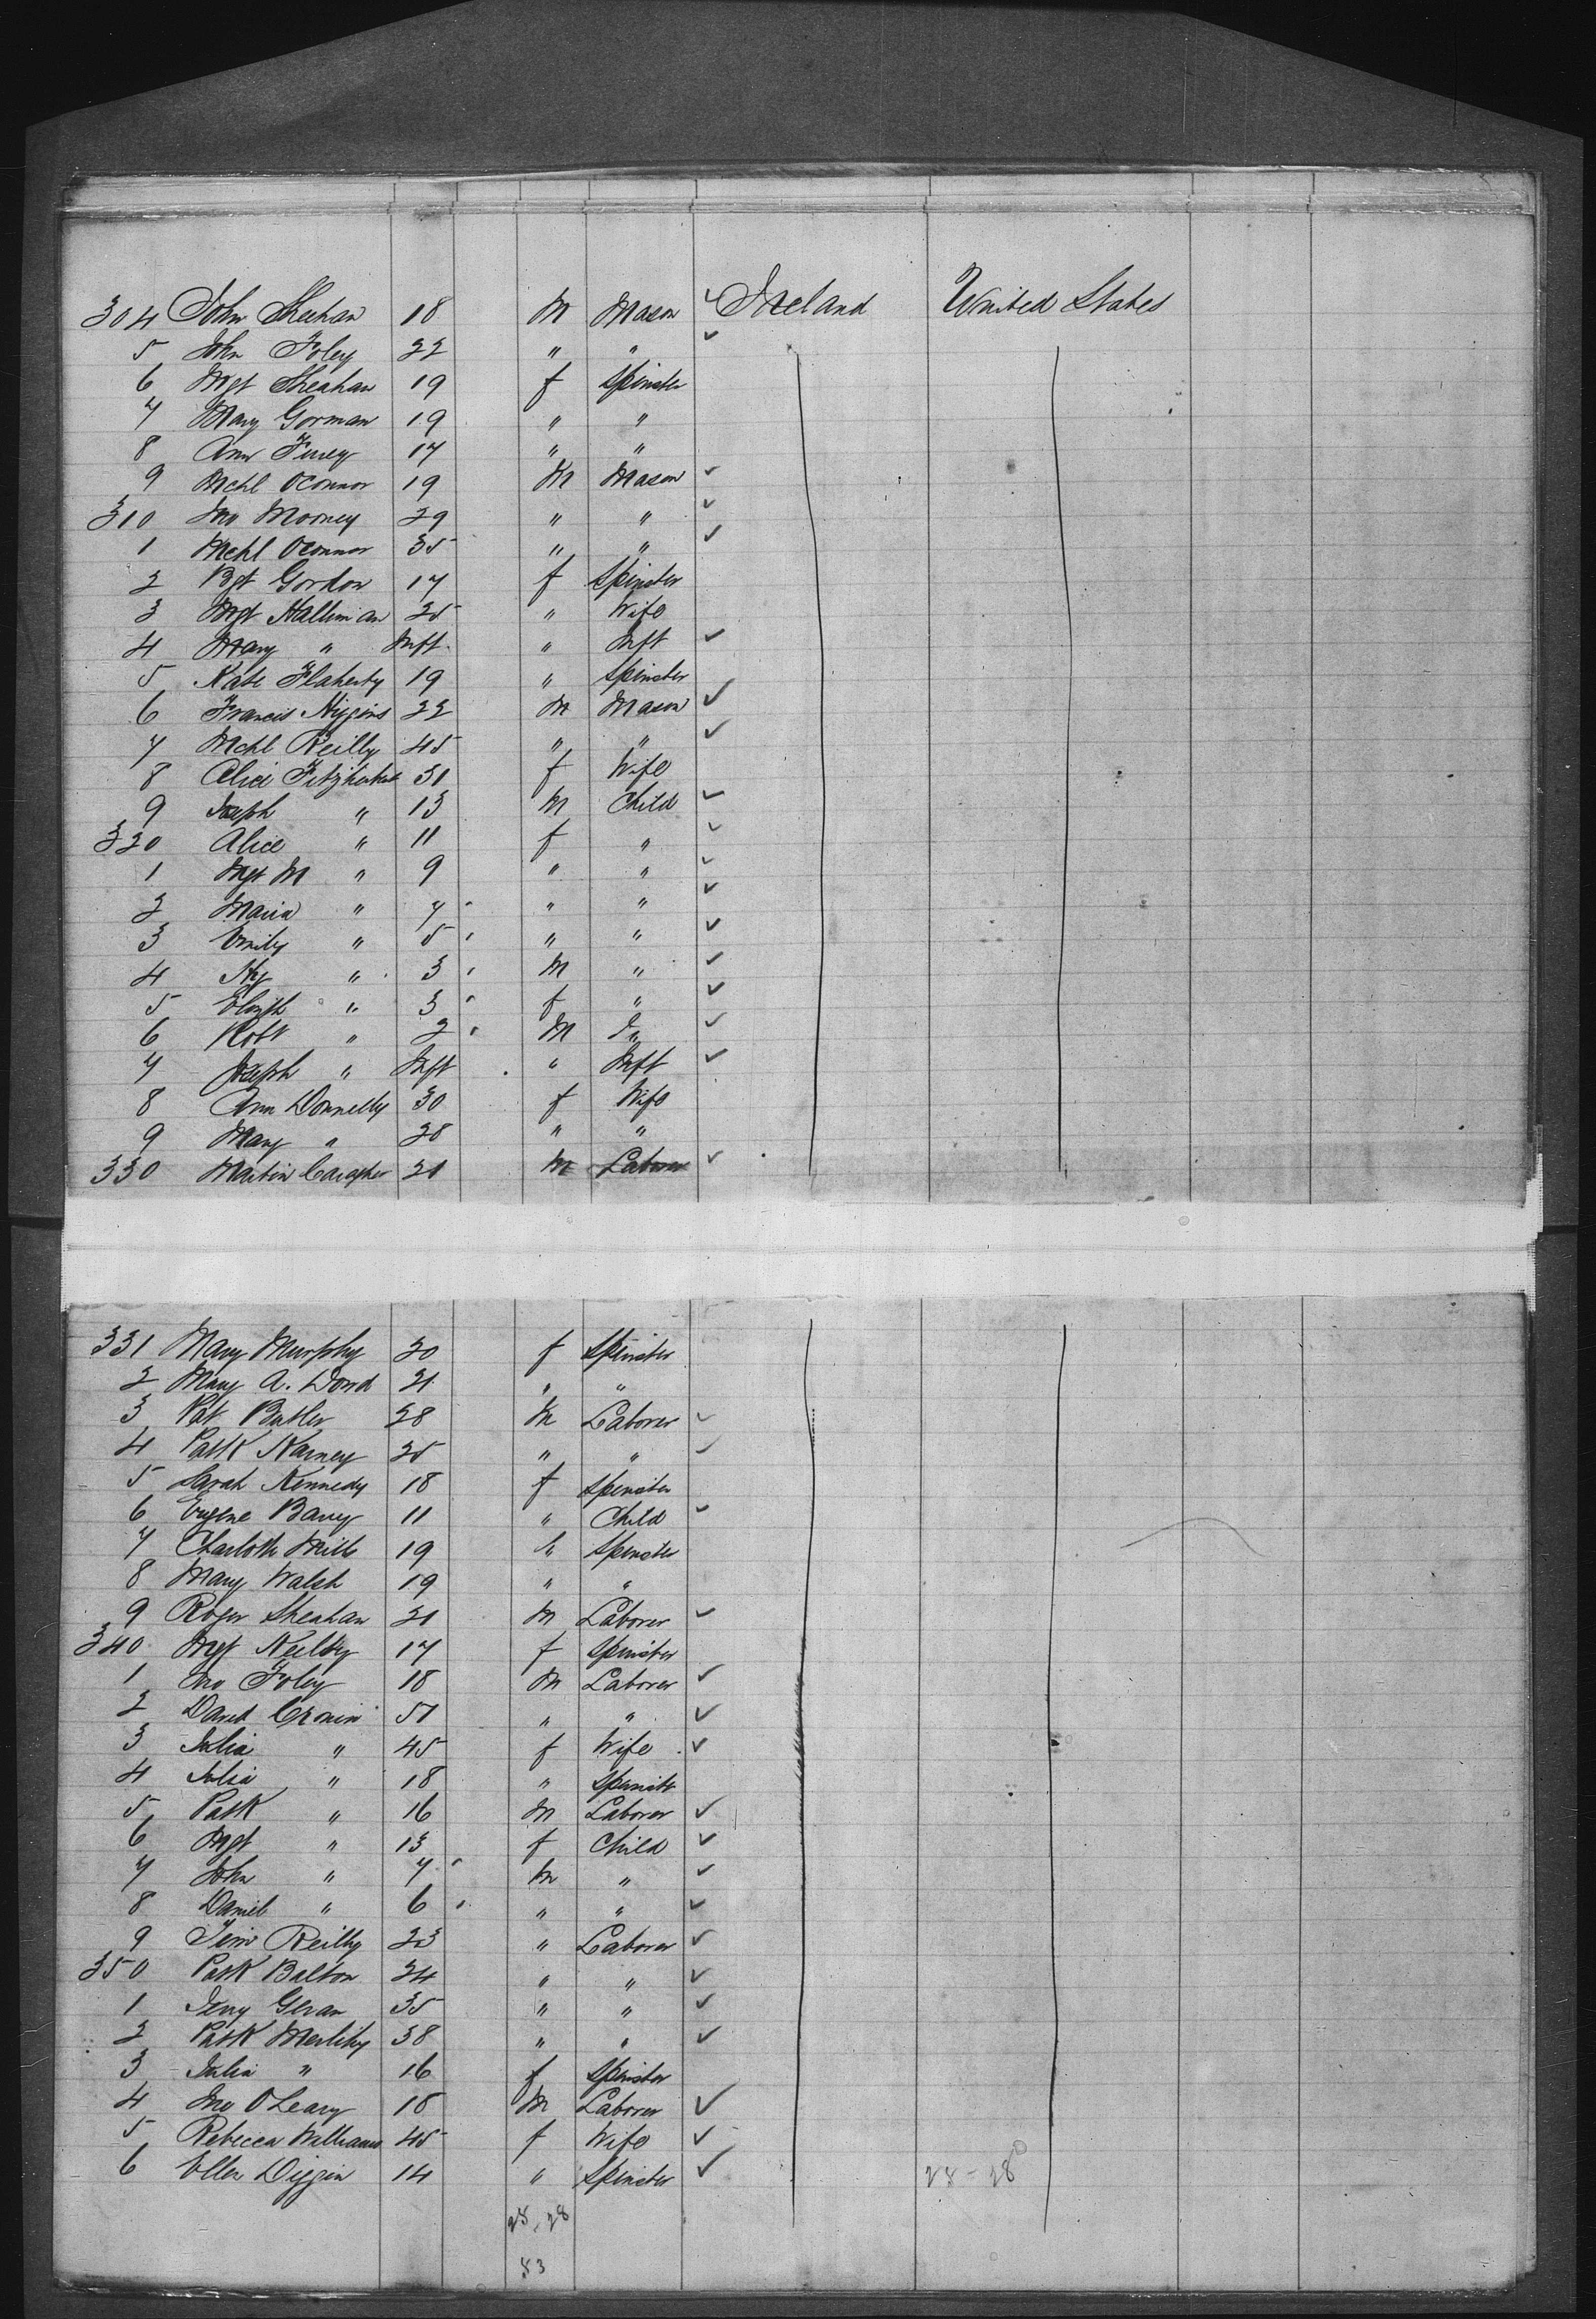 304 John Sheehan 18 M Mason ✓ Ireland United States
5 John Foley 22 " " ✓
6 Mgt Sheahan 19 f Spinster
7 Mary Gorman 19 " "
8 Ann Furey 17 " "
9 Mchl OConnor 19 M Mason ✓
310 Jno Mooney 29 " " ✓
1 Mchl OConnor 35 " " ✓
2 Bgt Gordon 17 f Spinster
3 Mgt Hallinan 25 " Wife
4 Mary " Inft " Inft ✓
5 Kate Flaherty 19 " Spinster
6 Francis Higgins 22 M Mason ✓
7 Mchl Reilly 45 " " ✓
8 Alice Fitzherbert 31 f Wife
9 Joseph " 13 M Child ✓
320 Alice " 11 f " ✓
1 Mgt M " 9 " " ✓
2 Maria " 7 " " ✓
3 Emily " 5 " " ✓
4 Hy " 3 M " ✓
5 Elizth " 3 f " ✓
6 Robt " 2 M " ✓
7 Joseph " Inft " Inft ✓
8 Ann Donnelly 30 f Wife
9 Mary " 28 " "
330 Martin 21 M Laborer ✓
331 Mary Murphy 20 f Spinster
2 Mary A. Dowd 21 " "
3 Pat Butler 28 M Laborer ✓
4 Patk Karney 25 " " ✓
5 Sarah Kennedy 18 f Spinster
6 Eugene Barry 11 " Child ✓
7 Charlotte Mills 19 " Spinster
8 Mary Walsh 19 " "
9 Roger Sheahan 21 M Laborer ✓
340 Mgt 17 f Spinster
1 Jno Foley 18 M Laborer ✓
2 David Cronin 51 " " ✓
3 Julia " 45 f Wife ✓
4 Julia " 18 " Spinstr
5 Patk " 16 M Laborer ✓
6 Mgt " 13 f Child ✓
7 John " 7 M " ✓
8 Daniel " 6 " " ✓
9 Tim Reilly 23 " Laborer ✓
350 Patk Balton 24 " " ✓
1 Jerry Geran 35 " " ✓
2 Patk 38 " " ✓
3 Julia " 16 f Spinster
4 Jno O Leary 18 M Laborer ✓
5 Rebecca Williams 45 f Wife ✓
6 Ellen Diggin 14 " Spinster ✓ 28-28
25-28
53